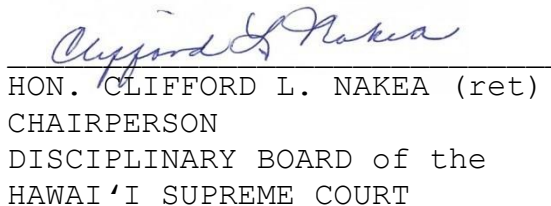 Clifford L Nakea
HON. CLIFFORD L. NAKEA (ret)
CHAIRPERSON
DISCIPLINARY BOARD of the
HAWAI'I SUPREME COURT